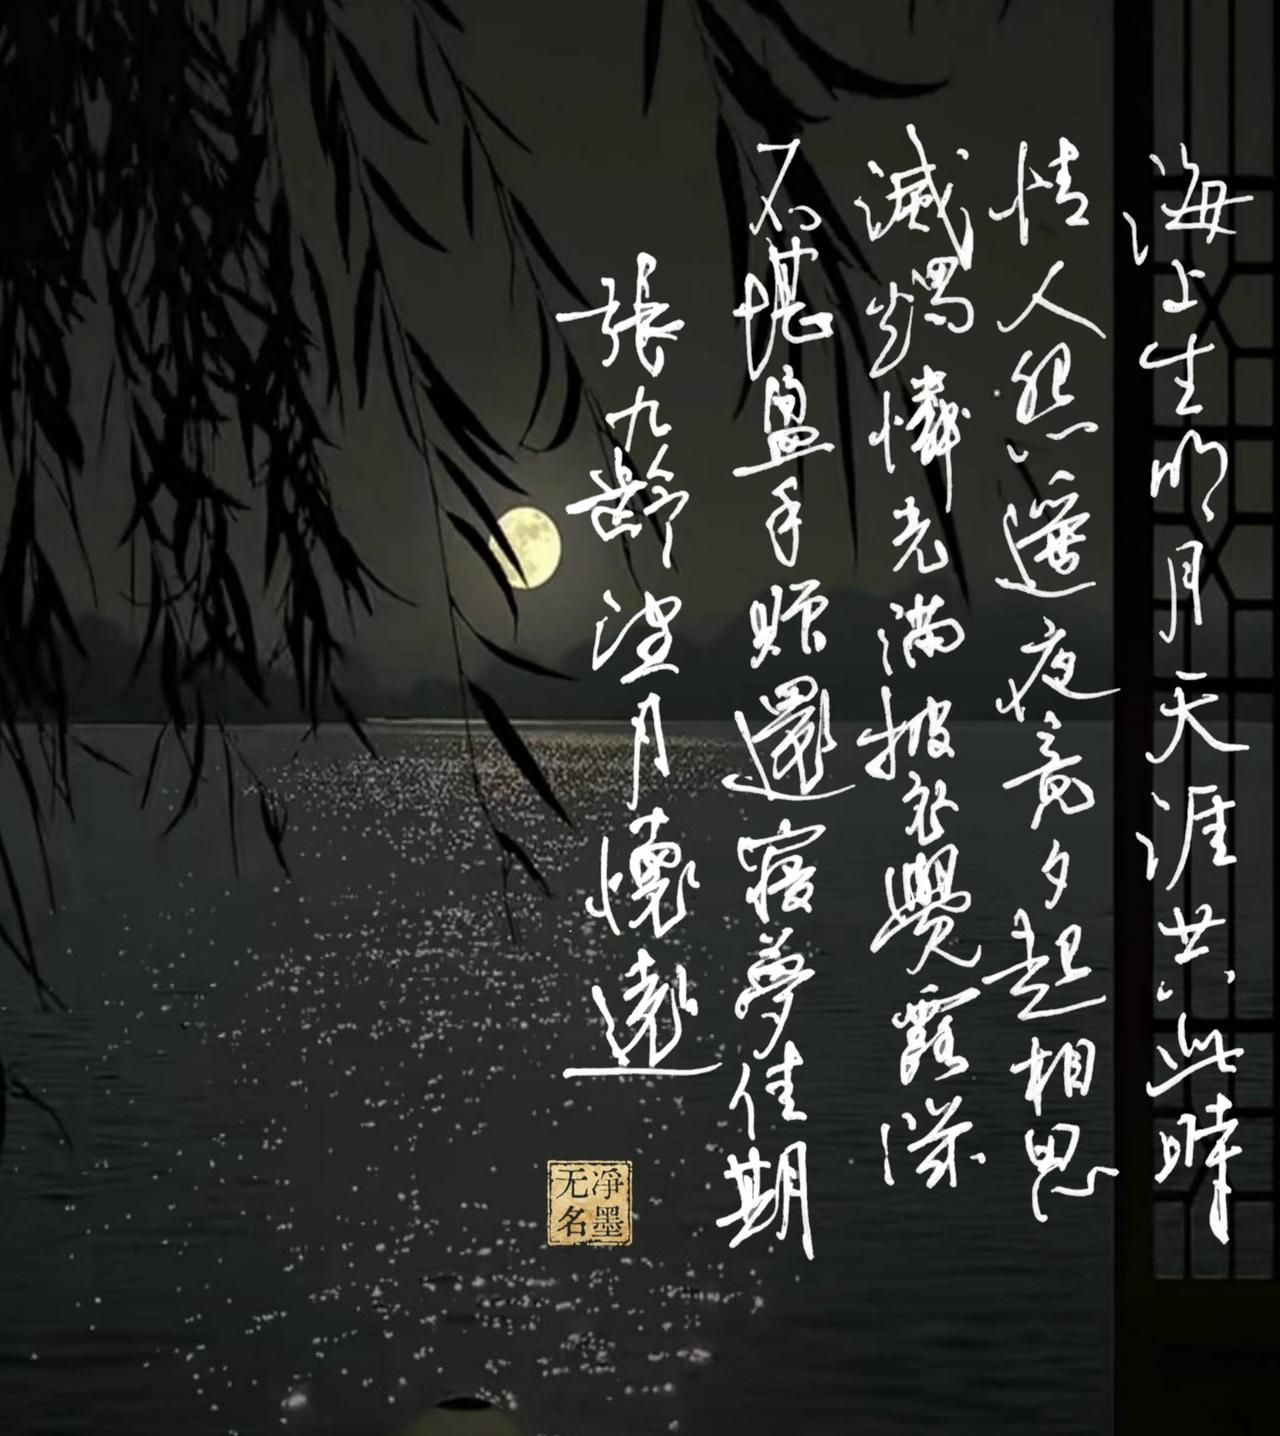 海上生明月天涯共此時
情人怨遥夜竟夕起相思
滅燭憐光滿披衣覺露滋
不堪盈手贈還寢夢佳期
張九齡望月懷遠
净墨
无名